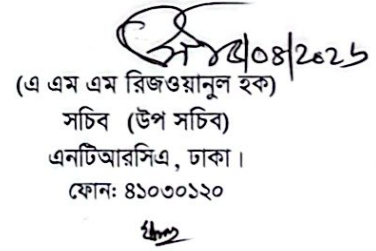 (এ এম এম রিজওয়ানুল হক)
সচিব (উপ সচিব)
এনটিআরসিএ, ঢাকা।
ফোন: ৪১০৩০১২০